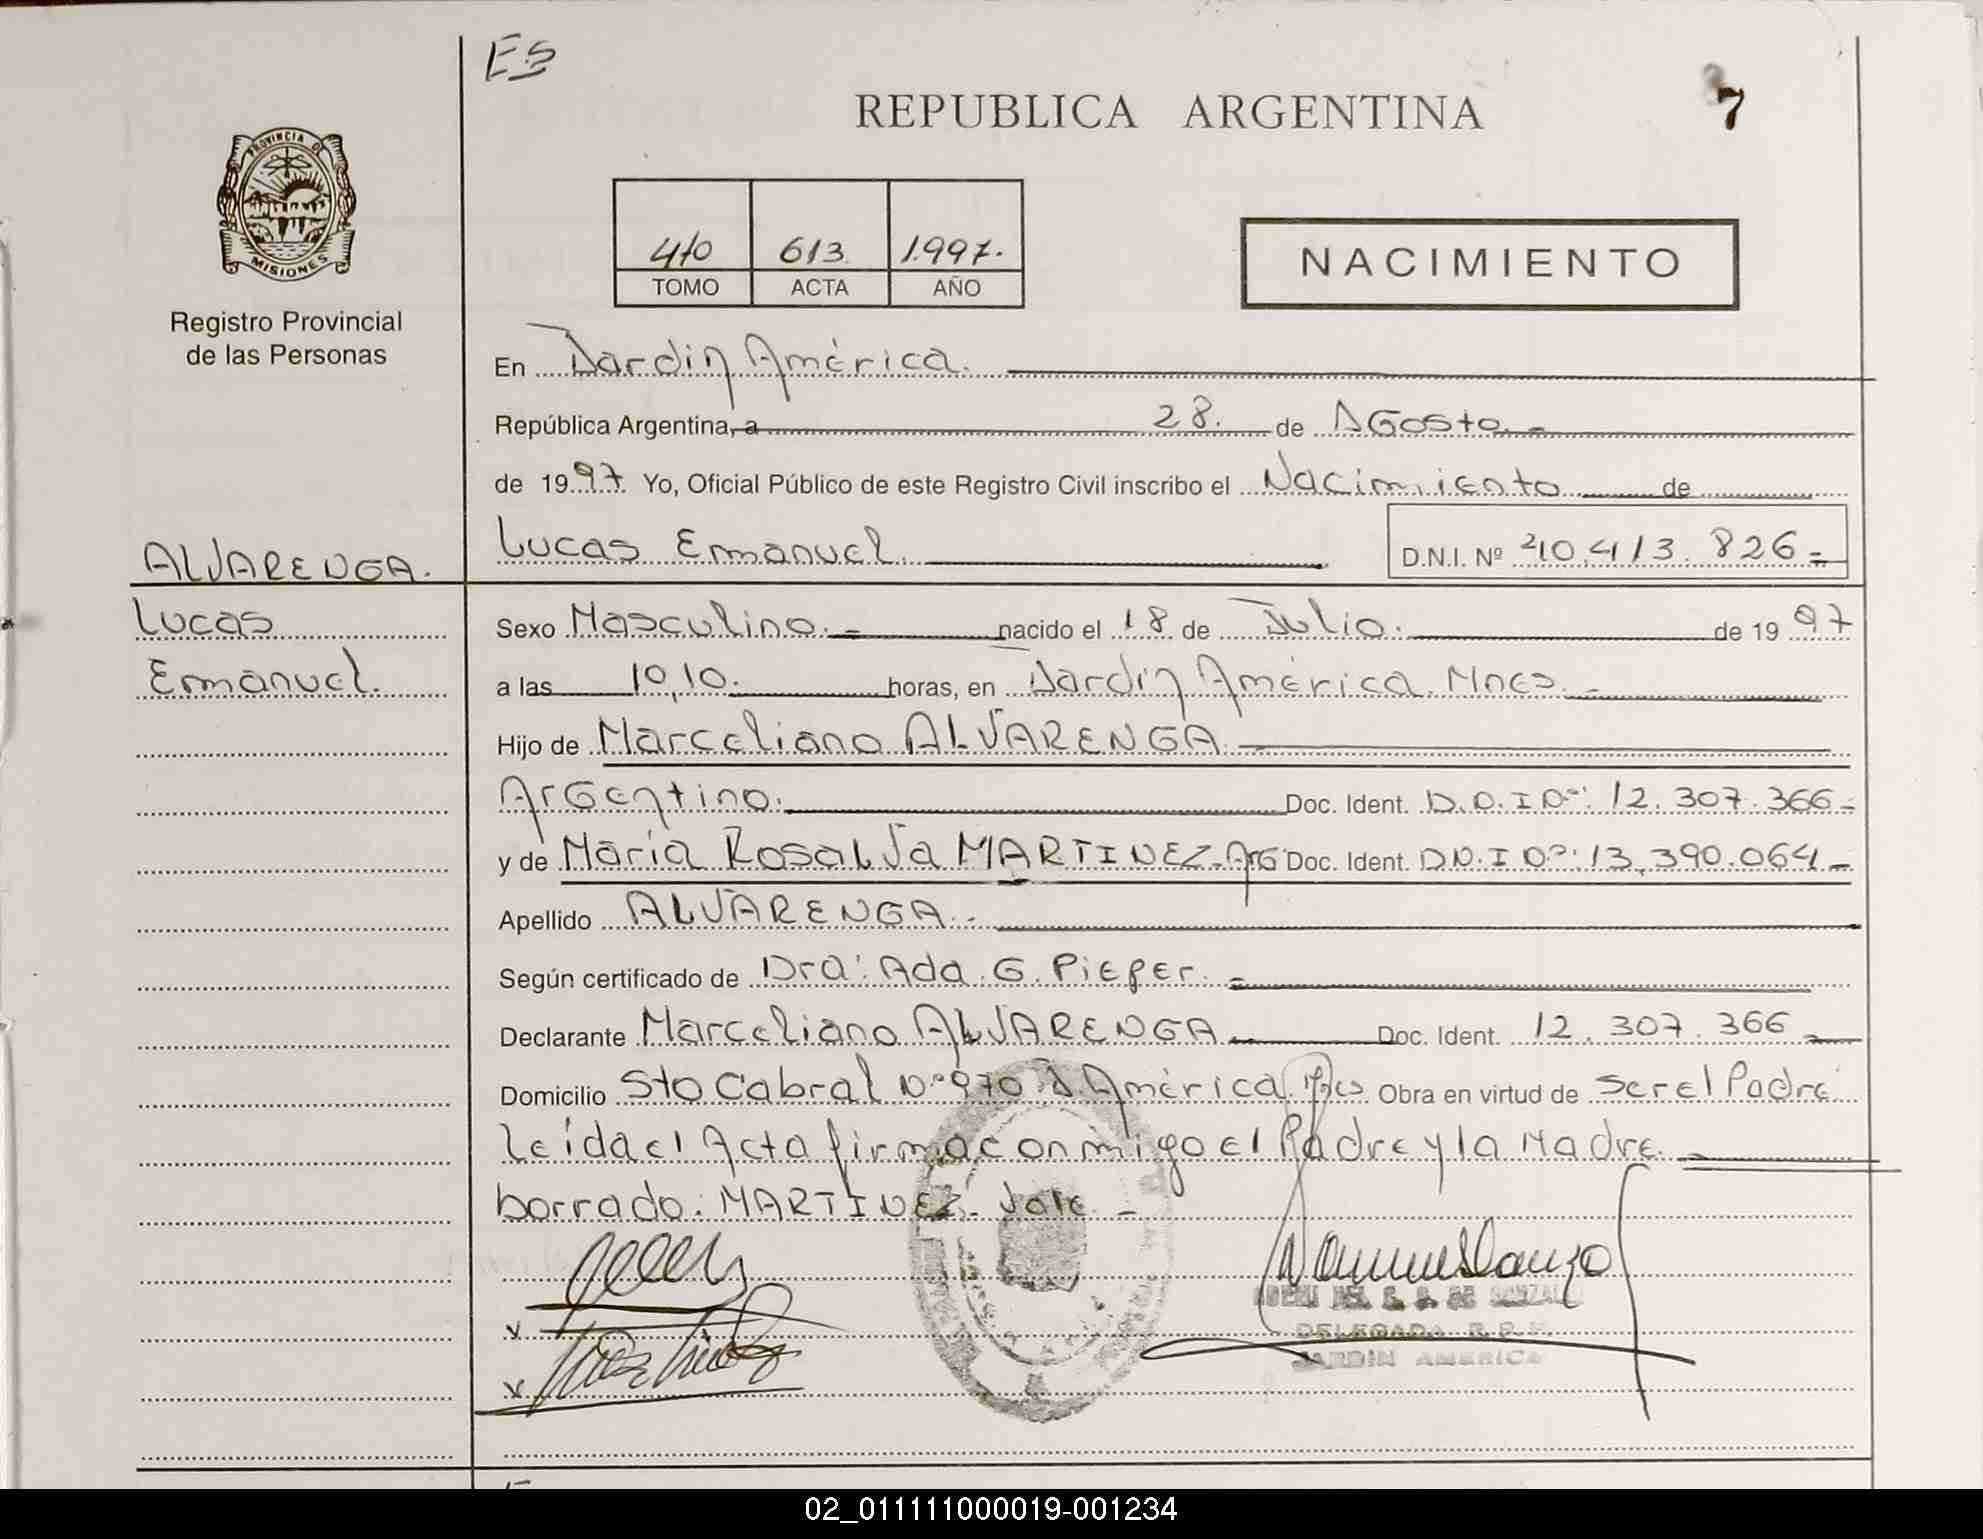 ES
REPUBLICA ARGENTINA
7
PROVINCIA DE
MISIONES
Registro Provincial
de las Personas
410 613. 1.997.
TOMO ACTA AÑO
NACIMIENTO
En Jardin América.
República Argentina, a 28. de AGosto. -
de 1997 Yo, Oficial Público de este Registro Civil inscribo el Nacimiento de
ALVARENGA.
Lucas
Emanuel.
Lucas Emanuel.
D.N.I. Nº 40.413.826=
Sexo Masculino. - nacido el 18 de Julio. de 1997
a las 10,10. horas, en Jardin América. Mnes. -
Hijo de Marceliano ALVARENGA
ArGentino. Doc. Ident. D.N.I Nº: 12.307.366-
y de María Rosalva MARTINEZ. ArG Doc. Ident. D.N.I Nº: 13.390.064-
Apellido ALVARENGA. -
Según certificado de Dra: Ada. G. Pieper. -
Declarante Marceliano ALVARENGA - Doc. Ident. 12.307.366 -
Domicilio Sto Cabral Nº 970 J. América. Mnes Obra en virtud de ser el Padre
Leida el Acta firma conmigo el Padre y la Madre. -
borrado: MARTINEZ. Vale. -
DELEGADA R.P.P.
JARDIN AMERICA
02_011111000019-001234